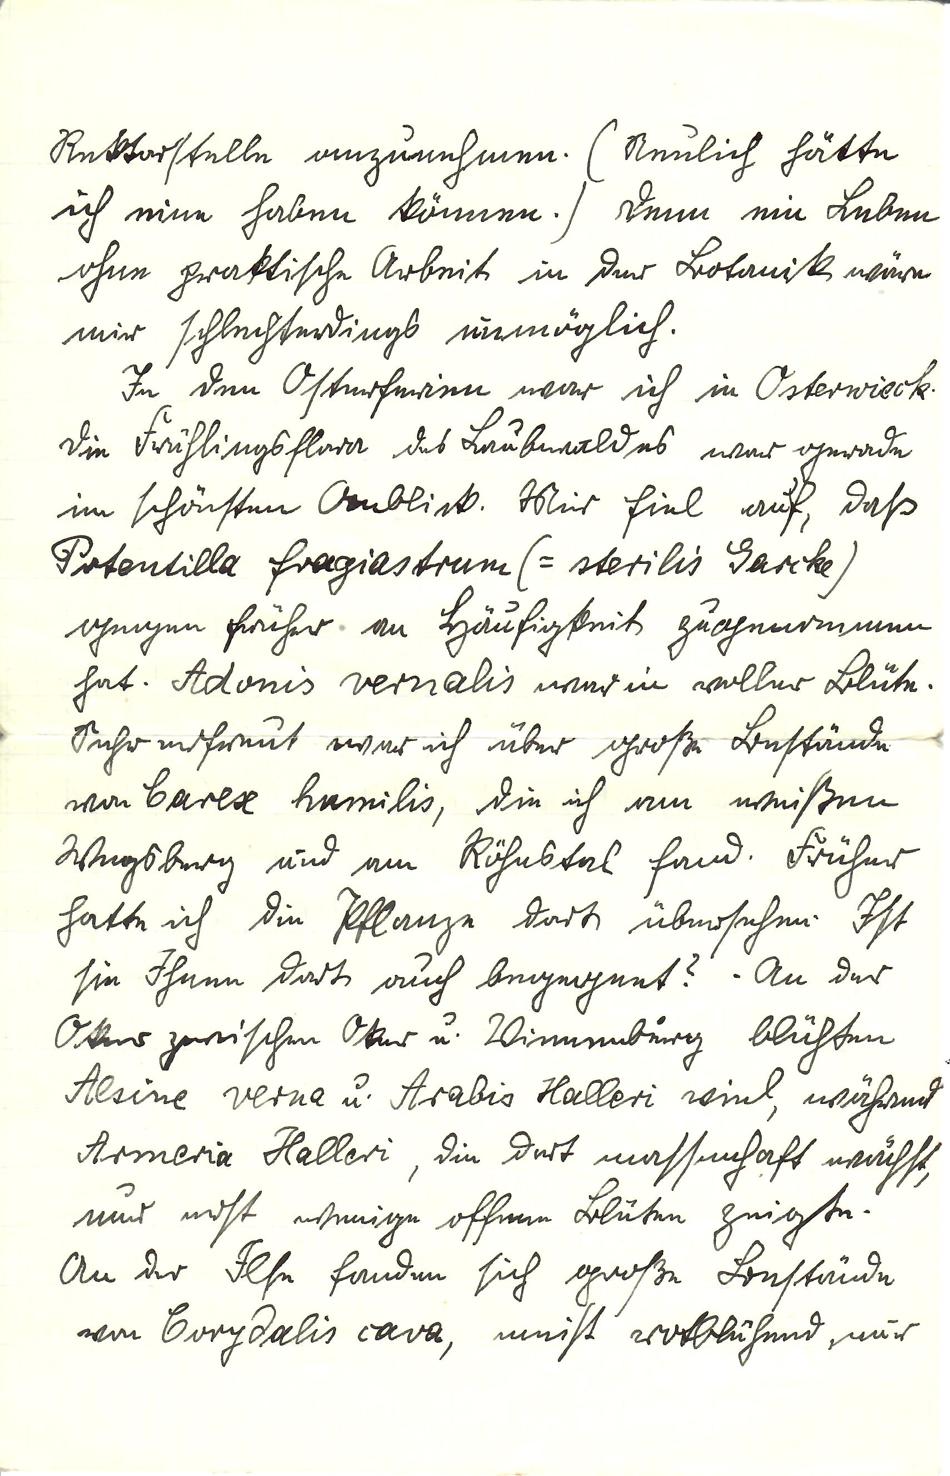 Rektorstelle anzunehmen. (Neulich hätte
ich eine haben können.) Denn ein Leben
ohne praktische Arbeit in der Botanik wäre
mir schlechterdings unmöglich.
In den Osterferien war ich in Osterwieck.
Die Frühlingsflora des Laubwaldes war gerade
im schönsten Anblick. Mir fiel auf, daß
Potentilla fragiastrum (= sterilis Garcke)
gegen früher an Häufigkeit zugenommen
hat. Adonis vernalis war in voller Blüte.
Sehr erfreut war ich über große Bestände
von Carex humilis, die ich am weißen
Wegsberg und am Röhstal fand. Früher
hatte ich die Pflanze dort übersehen. Ist
sie Ihnen dort auch begegnet? - An der
Oker zwischen Oker u. Vienenburg blühten
Alsine verna u. Arabis Halleri viel, während
Armeria Halleri, die dort massenhaft wächst,
nur erst wenige offene Blüten zeigte.
An der Ilse fanden sich große Bestände
von Corydalis cava, meist rotblühend, nur